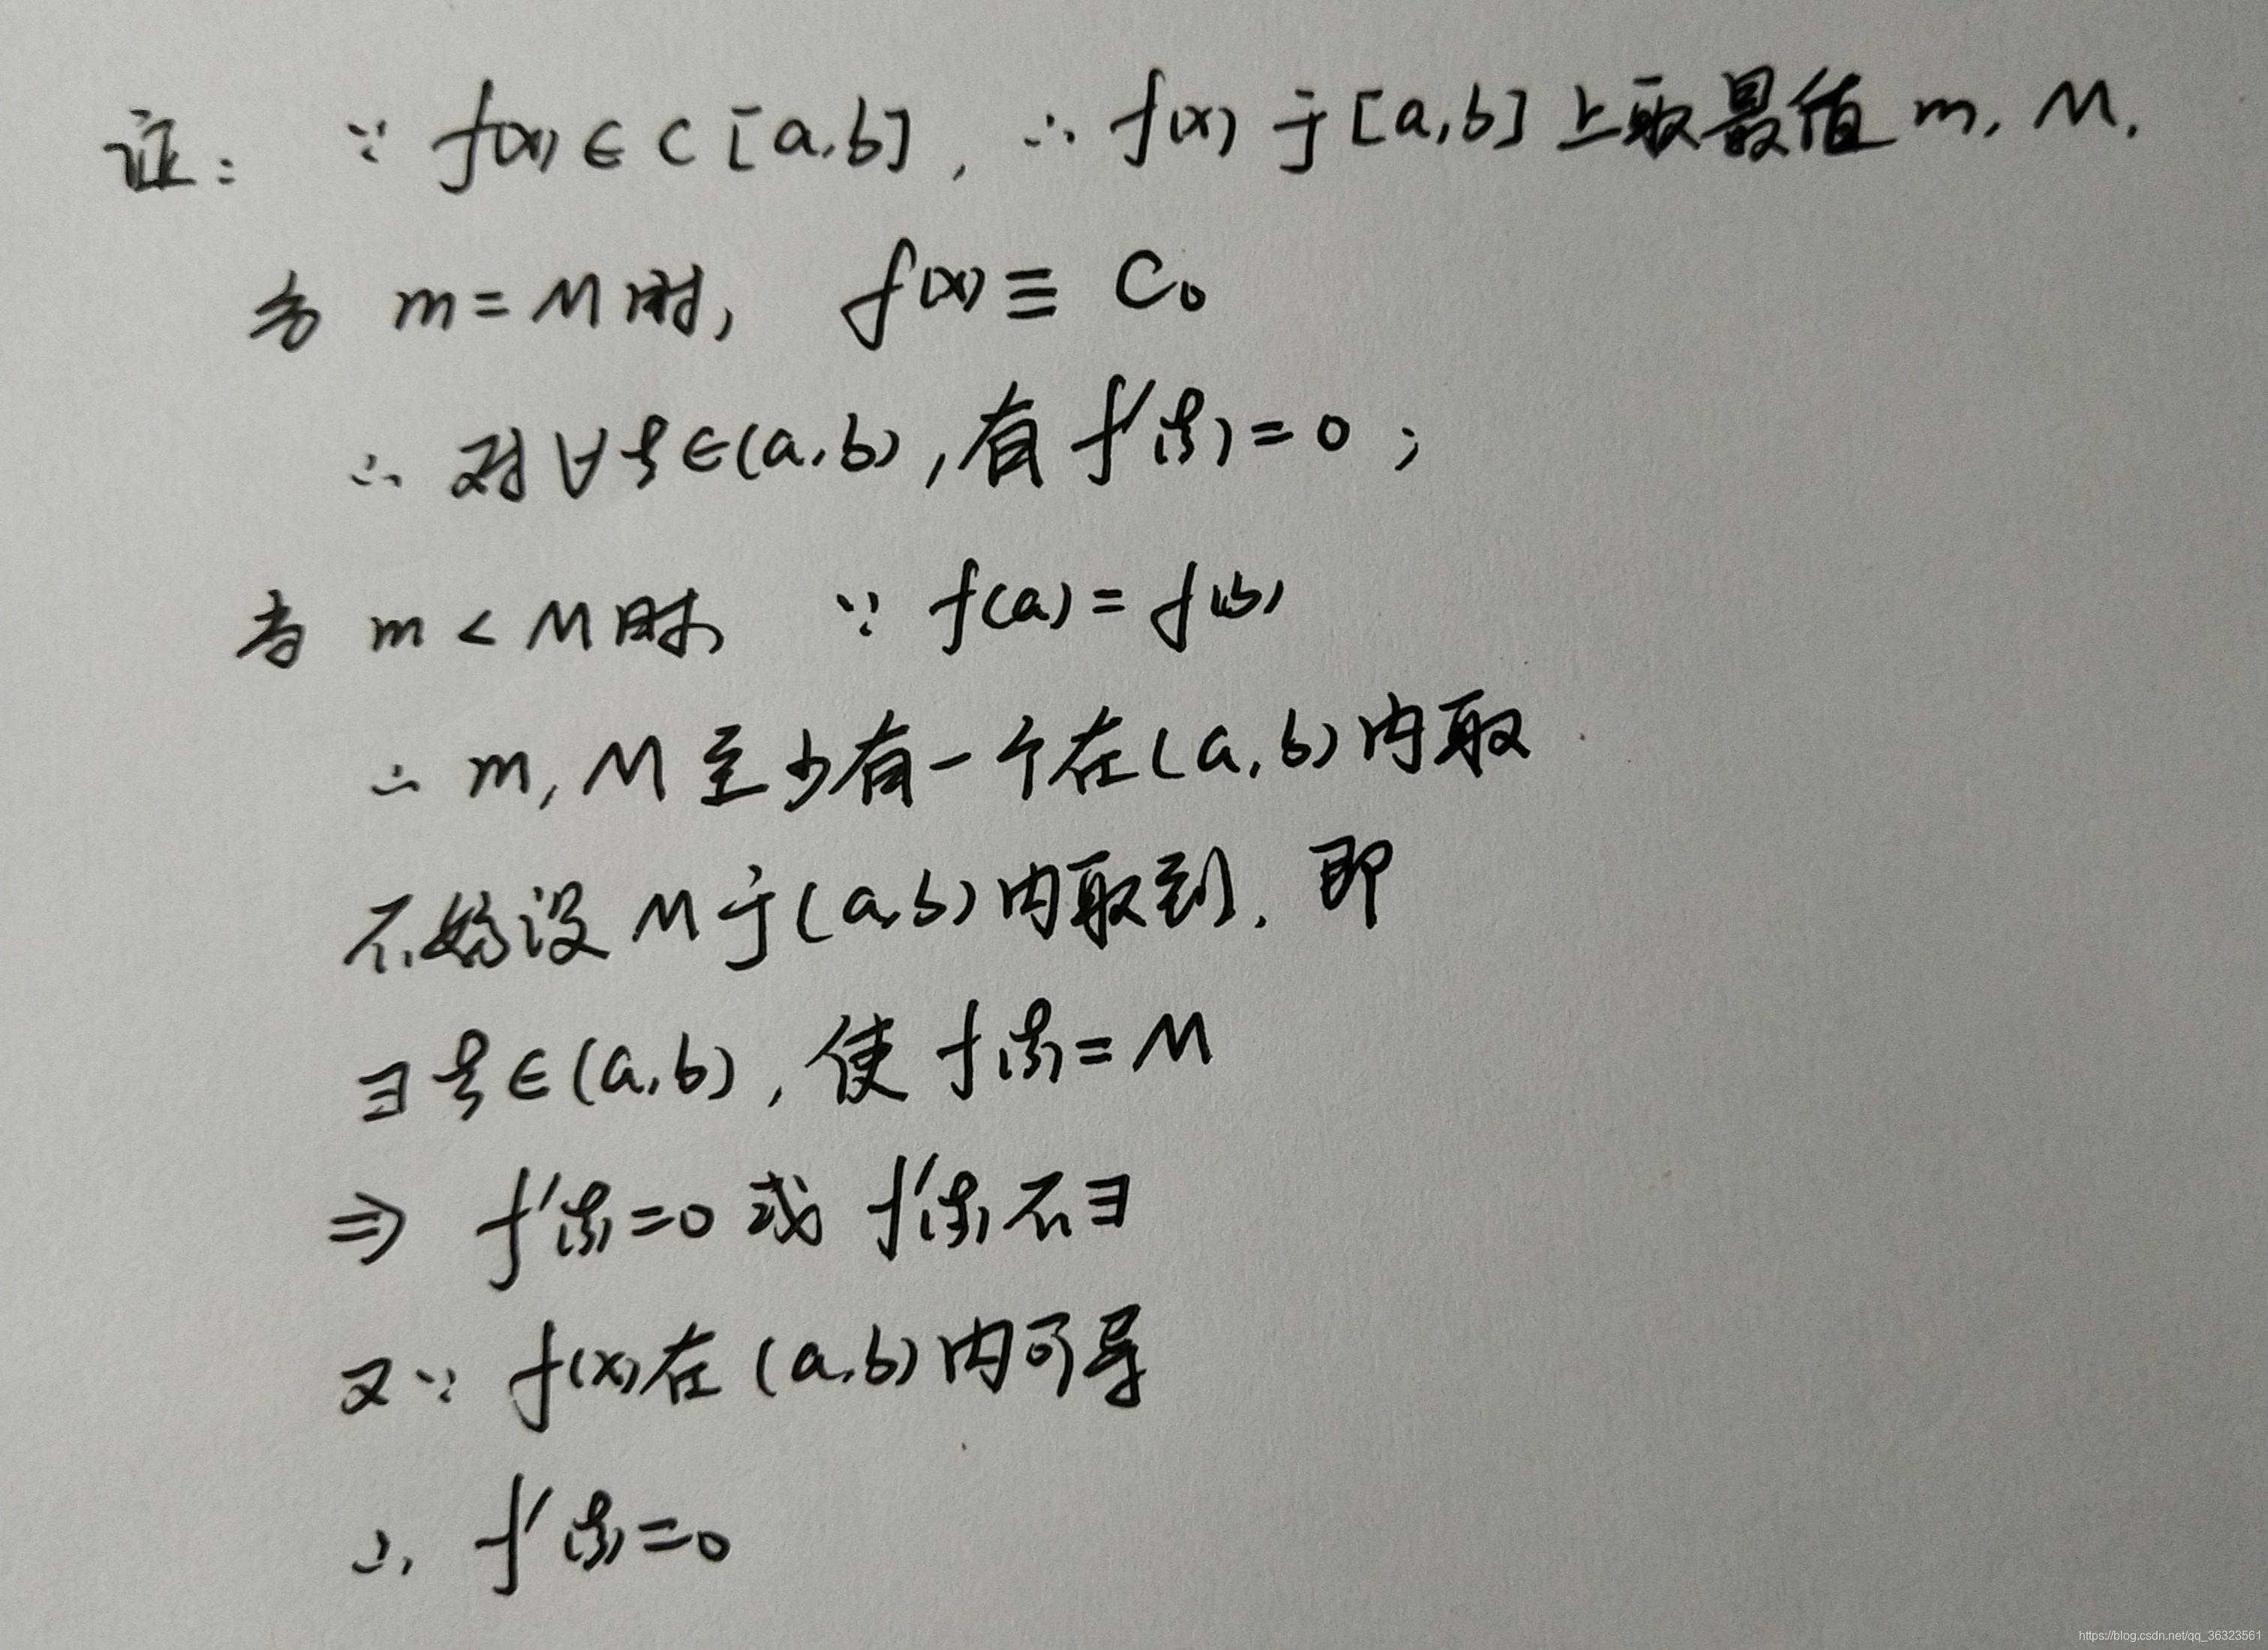 证: ∵ f(x)∈C[a,b], ∴ f(x)于[a,b]上取最值 m, M.
当 m=M时, f(x)≡C₀
∴ 对∀ξ∈(a,b),有f'(ξ)=0;
当 m<M时, ∵ f(a)=f(b)
∴ m, M至少有一个在(a,b)内取
不妨设M于(a,b)内取到, 即
∃ξ∈(a,b), 使f(ξ)=M
⇒ f'(ξ)=0 或 f'(ξ)不∃
又∵ f(x)在(a,b)内可导
∴ f'(ξ)=0
https://blog.csdn.net/qq_36323561